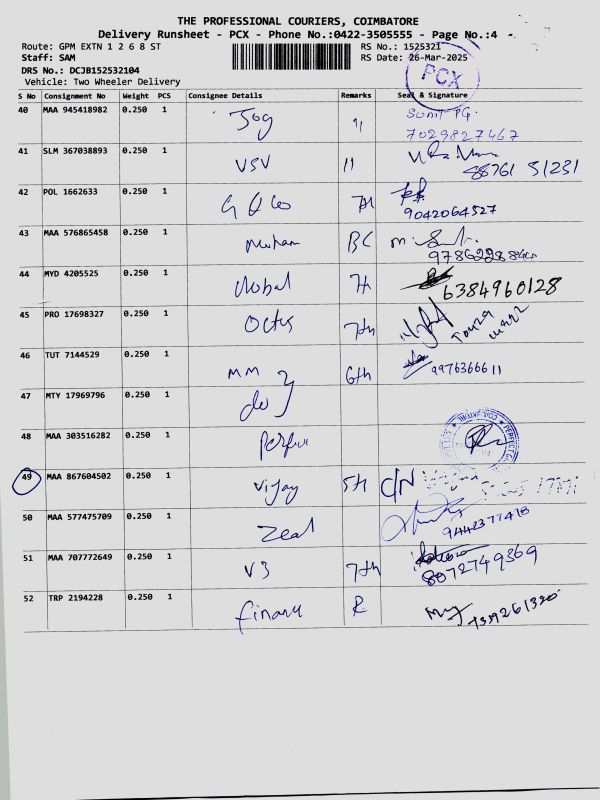 THE PROFESSIONAL COURIERS, COIMBATORE
Delivery Runsheet - PCX - Phone No.:0422-3505555 - Page No.:4 -
Route: GPM EXTN 1 2 6 8 ST RS No.: 1525321
Staff: SAM RS Date: 26-Mar-2025
DRS No.: DCJB152532104
PCX
Vehicle: Two Wheeler Delivery
S No Consignment No Weight PCS Consignee Details Remarks Seal & Signature
40 MAA 945418982 0.250 1 Jog 11 Sumit PG.
7029827467
41 SLM 367038893 0.250 1 VSV 11
88761 51231
42 POL 1662633 0.250 1 7th
9042064527
43 MAA 576865458 0.250 1 Mohan BC
44 MYD 4205525 0.250 1 Global 7th 6384960128
45 PRO 17698327 0.250 1 Octus 7th
46 TUT 7144529 0.250 1 MM 6th 9976366611
47 MTY 17969796 0.250 1 do
48 MAA 303516282 0.250 1 Perfu
49 MAA 867604502 0.250 1 Vijay 5th C/N
50 MAA 577475709 0.250 1 Zeal
9442377418
51 MAA 707772649 0.250 1 V3 7th
8072749369
52 TRP 2194228 0.250 1 R